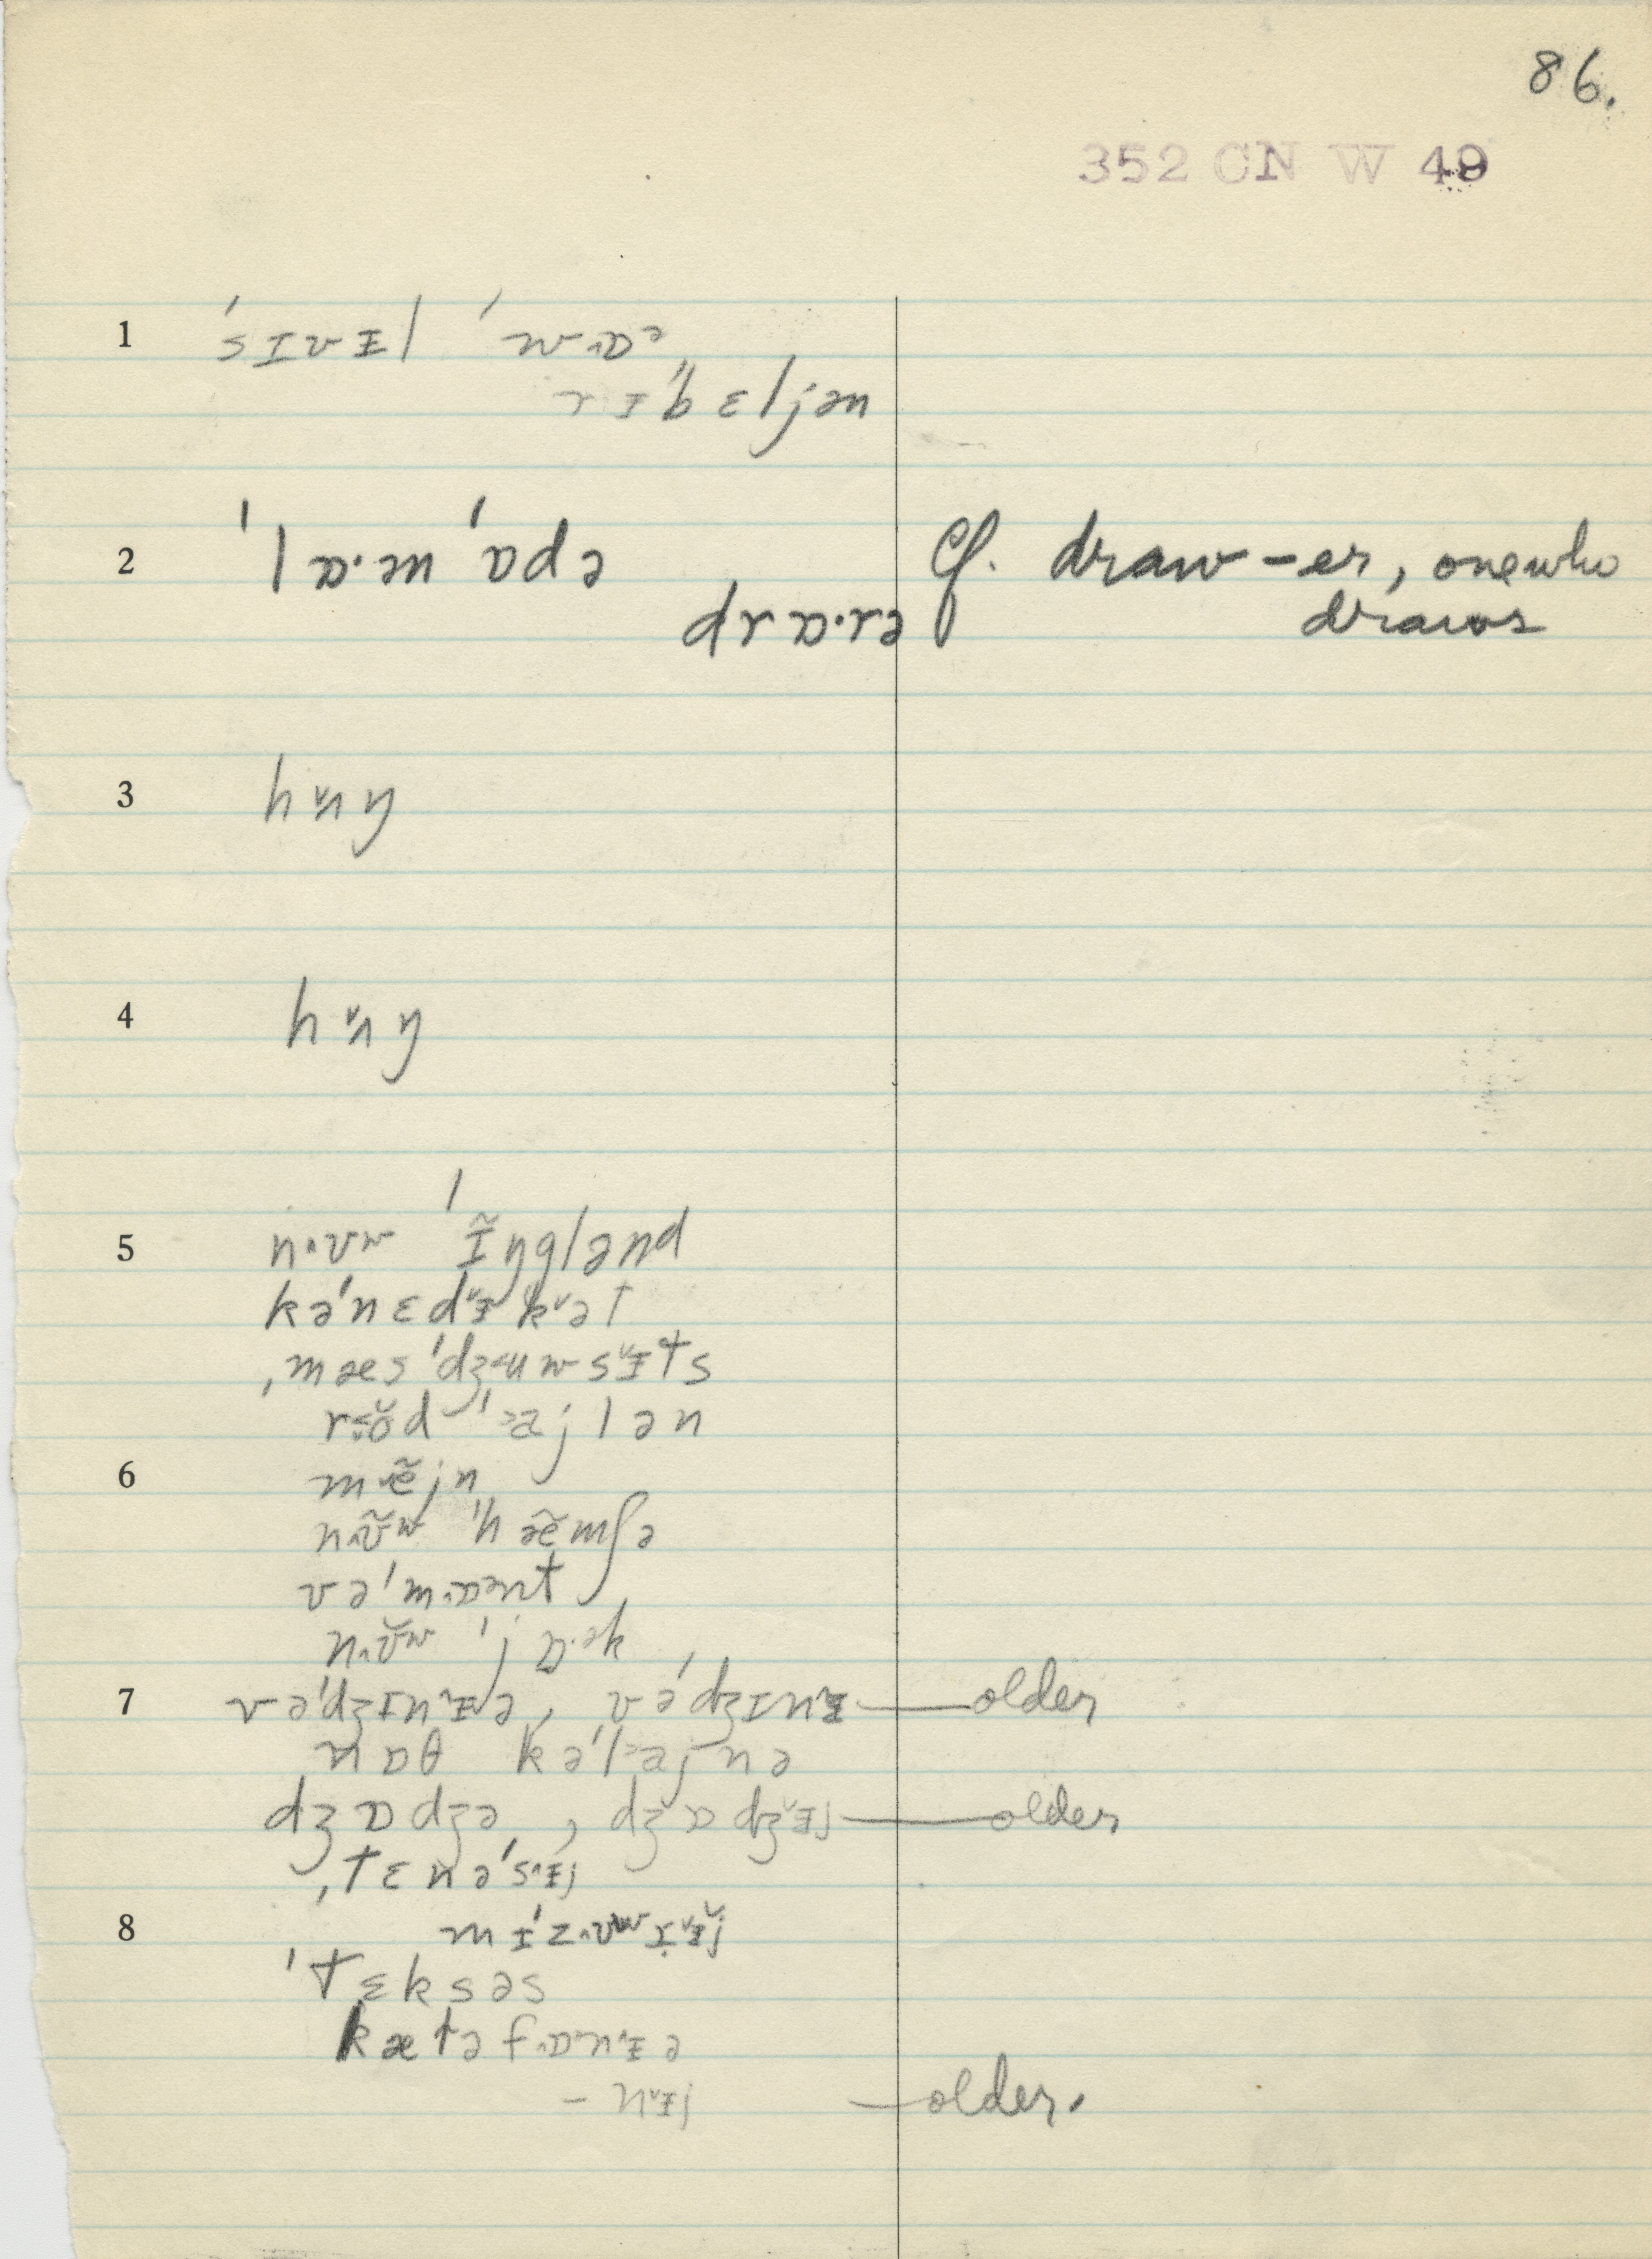 86.
352 CN W 49
1 ˈsɪvᵻl ˈwɒˑə
rᵻˈbɛljən
2 ˈlɒˑən ˈɒdə Cf. draw-er, one who
drɒˑrə draws
3 hʌŋ
4 hʌŋ
5 nᵻʊw ˈĩŋglənd
kəˈnɛdᵻkət
ˌmæsˈdʒuwsᵻts
rod ˈajlən
6 mẽjn
nʊ̃w ˈhæ̃mʃə
vəˈmɒənt
nʊw ˈjɒˑək
7 vəˈdʒɪnᵻə, vəˈdʒɪnᵻ — older
nɒθ kəˈlajnə
dʒɒdʒə, dʒɒdʒᵻj — older
ˌtɛnəˈsᵻj
8 mᵻˈzʊwrᵻj
ˈtɛksəs
kætəfɒnᵻə
– nᵻj — older.